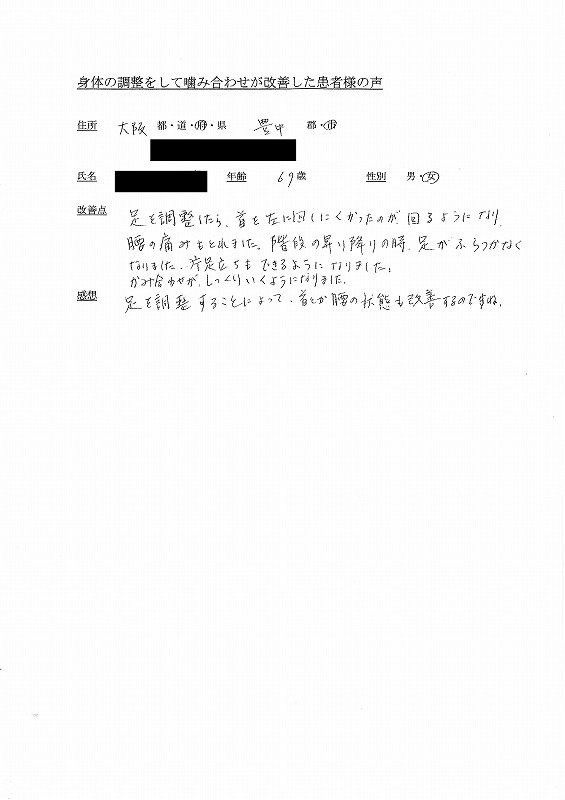 身体の調整をして噛み合わせが改善した患者様の声
住所 大阪 都・道・府・県 豊中 郡・市
氏名 年齢 69歳 性別 男・女
改善点 足を調整したら、首を左に回しにくかったのが、回るようになり、
腰の痛みもとれました。階段の昇り降りの時、足がふらつかなく
なりました。片足立ちもできるようになりました。
かみ合わせが、しっくりいくようになりました。
感想 足を調整することによって、首とか腰の状態も改善するのですね。